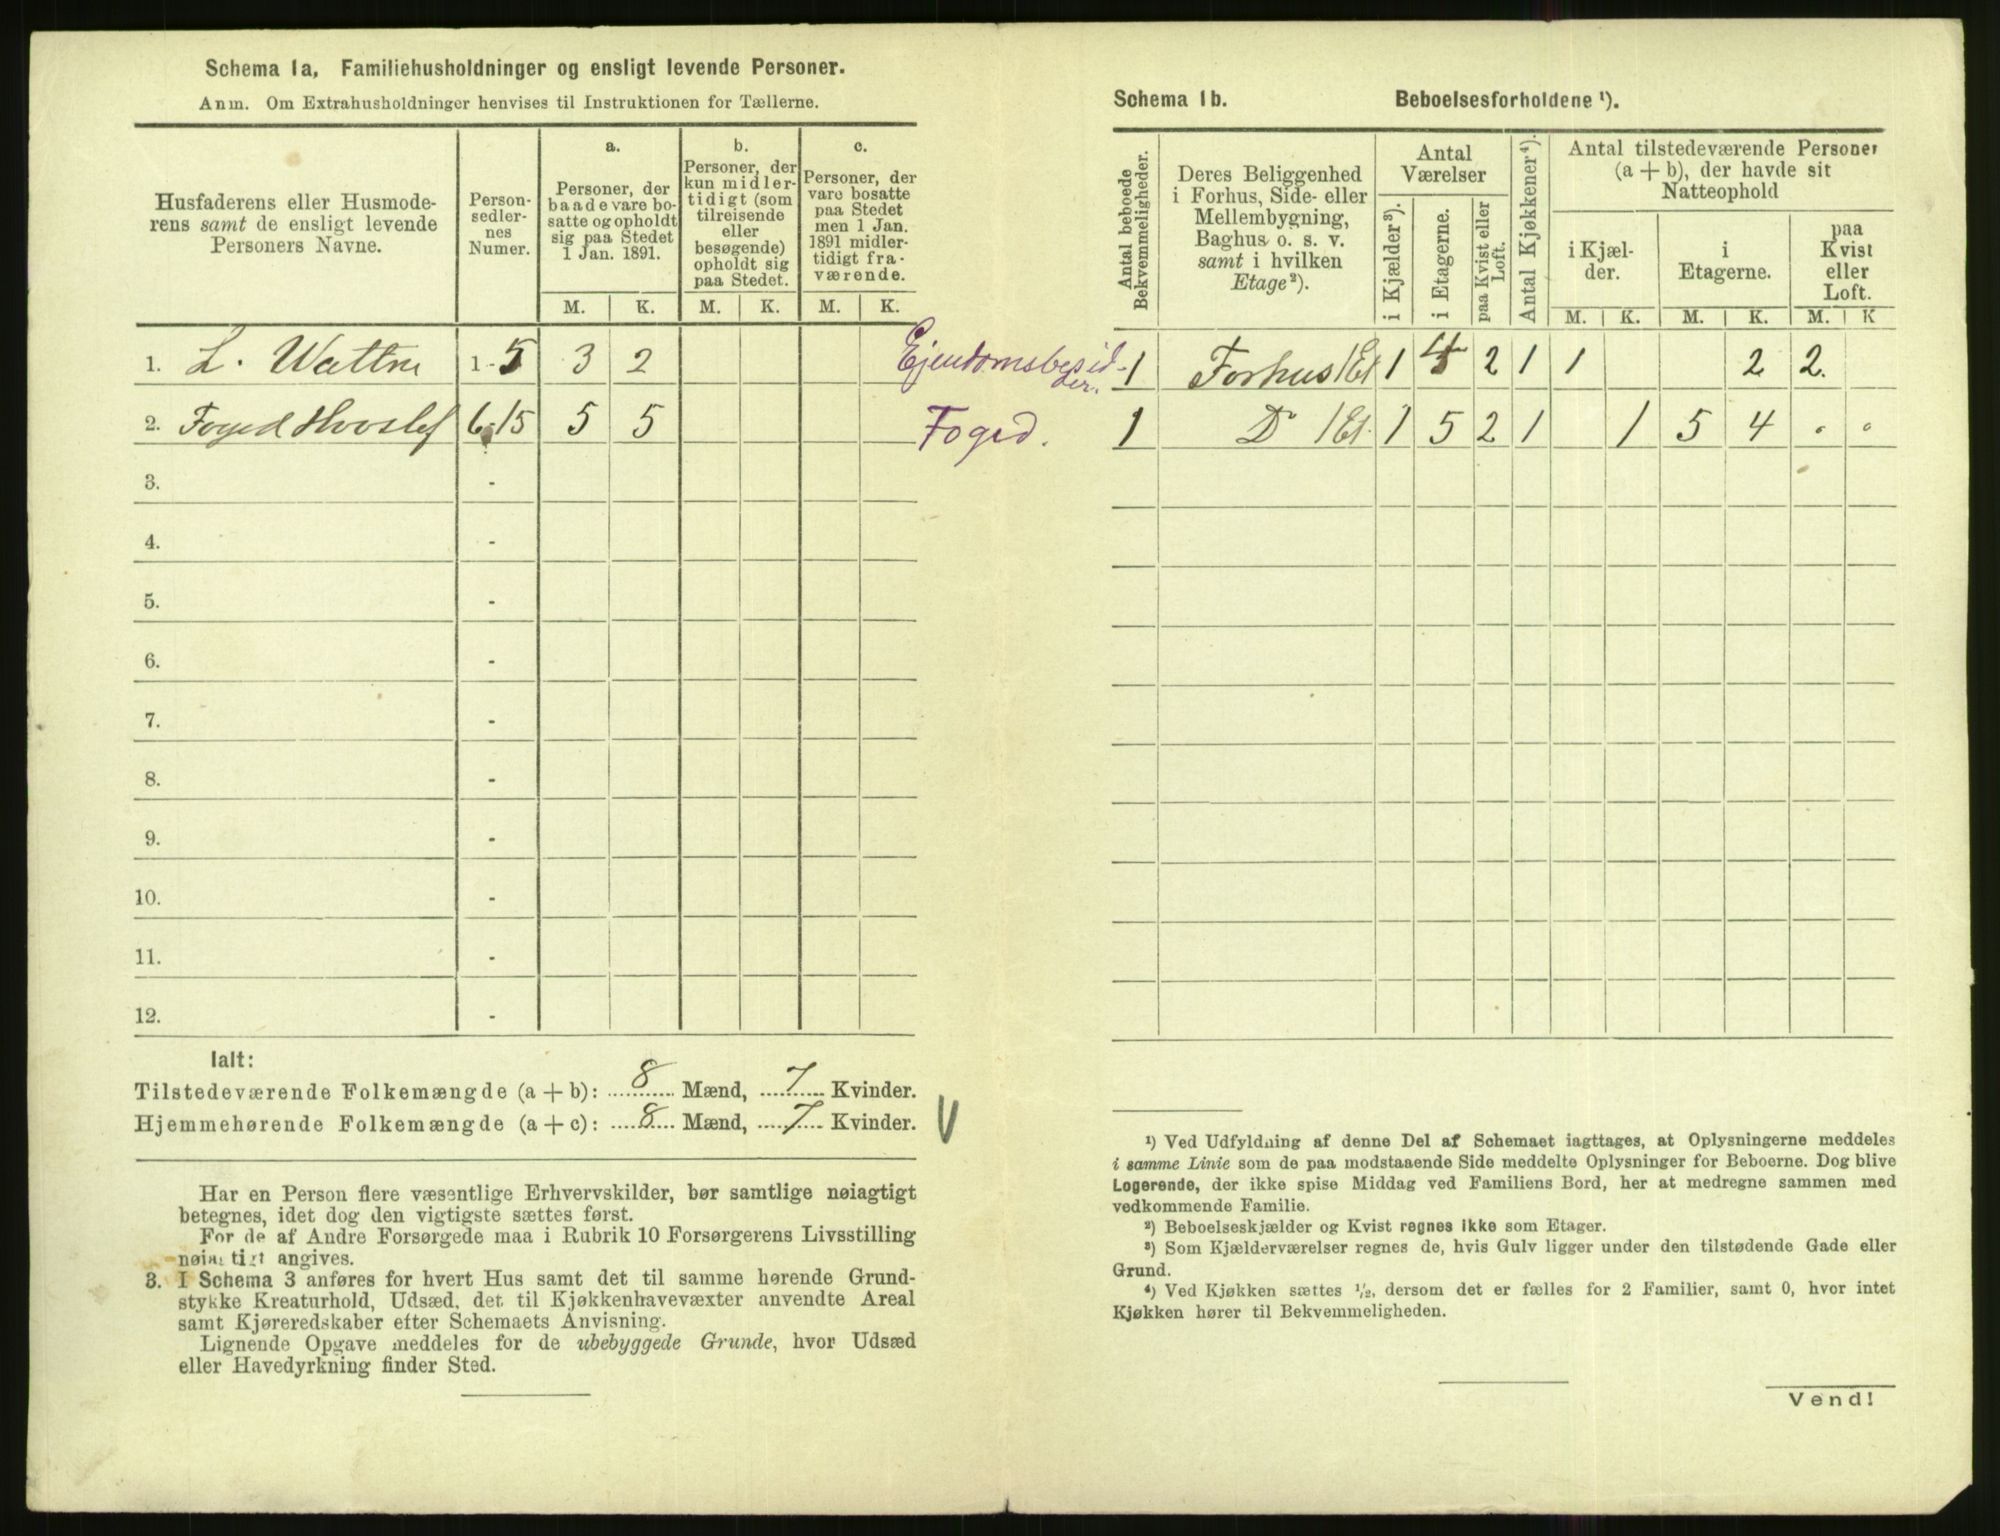 Schema 1a, Familiehusholdninger og ensligt levende Personer.
Anm. Om Extrahusholdninger henvises til Instruktionen for Tællerne.
Husfaderens eller Husmoderens samt de ensligt levende Personers Navne.
Personsedlernes Numer.
a.
Personer, der baade vare bosatte og opholdt sig paa Stedet 1 Jan. 1891.
b.
Personer, der kun midlertidigt (som tilreisende eller besøgende) opholdt sig paa Stedet.
c.
Personer, der vare bosatte paa Stedet men 1 Jan. 1891 midlertidigt fraværende.
M. K. M. K. M. K.
1. L. Wattne 1-5 3 2 Ejendomsbesidder.
2. Foged Hvoslef 6-15 5 5 Foged.
3. -
4. -
5. -
6. -
7. -
8. -
9. -
10. -
11. -
12. -
Ialt:
Tilstedeværende Folkemængde (a + b): 8 Mænd, 7 Kvinder.
Hjemmehørende Folkemængde (a + c): 8 Mænd, 7 Kvinder.
Har en Person flere væsentlige Erhvervskilder, bør samtlige nøiagtigt
betegnes, idet dog den vigtigste sættes først.
For de af Andre Forsørgede maa i Rubrik 10 Forsørgerens Livsstilling
nøiagtigt angives.
3. I Schema 3 anføres for hvert Hus samt det til samme hørende Grund-
stykke Kreaturhold, Udsæd, det til Kjøkkenhavevæxter anvendte Areal
samt Kjøreredskaber efter Schemaets Anvisning.
Lignende Opgave meddeles for de ubebyggede Grunde, hvor Udsæd
eller Havedyrkning finder Sted.
Schema 1b. Beboelsesforholdene ¹).
Antal beboede Bekvemmeligheder.
Deres Beliggenhed i Forhus, Side- eller Mellembygning, Baghus o. s. v. samt i hvilken Etage ²).
Antal Værelser
i Kjælder ³).
i Etagerne.
paa Kvist eller Loft.
Antal Kjøkkener ⁴).
Antal tilstedeværende Personer (a + b), der havde sit Natteophold
i Kjælder.
i Etagerne.
paa Kvist eller Loft.
M. K. M. K. M. K
1 Forhus 1 Et 1 4 2 1 1 2 2.
1 Do 1 Et. 1 5 2 1 1 5 4 . .
¹) Ved Udfyldning af denne Del af Schemaet iagttages, at Oplysningerne meddeles
i samme Linie som de paa modstaaende Side meddelte Oplysninger for Beboerne. Dog blive
Logerende, der ikke spise Middag ved Familiens Bord, her at medregne sammen med
vedkommende Familie.
²) Beboelseskjælder og Kvist regnes ikke som Etager.
³) Som Kjælderværelser regnes de, hvis Gulv ligger under den tilstødende Gade eller
Grund.
⁴) Ved Kjøkken sættes ½, dersom det er fælles for 2 Familier, samt 0, hvor intet
Kjøkken hører til Bekvemmeligheden.
Vend!